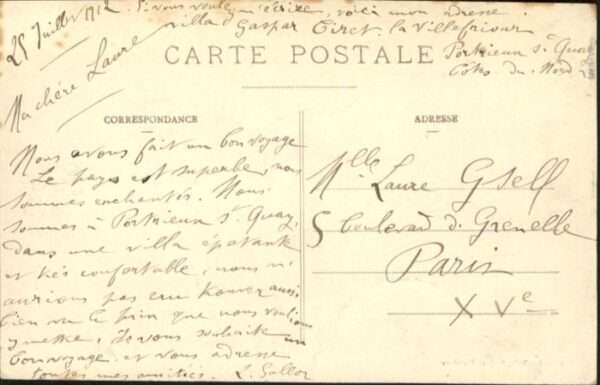 25 Juillet 1912
Si vous voulez m'écrire, voici mon adresse
villa Gaspar Ciret, la Ville
Portrieux St Quay
Côtes du Nord
CARTE POSTALE
Ma chère Laure
CORRESPONDANCE
ADRESSE
Nous avons fait un bon voyage
Le pays est superbe, nous
sommes enchantés. Nous
sommes à Portrieux St Quay,
dans une villa épatante
et très confortable, nous n'
aurions pas cru trouver aussi
bien vu le prix que nous voulions
y mettre, Je vous souhaite un
bon voyage et vous adresse
toutes mes amitiés.
Mlle Laure Gsell
5 boulevard de Grenelle
Paris
XVe